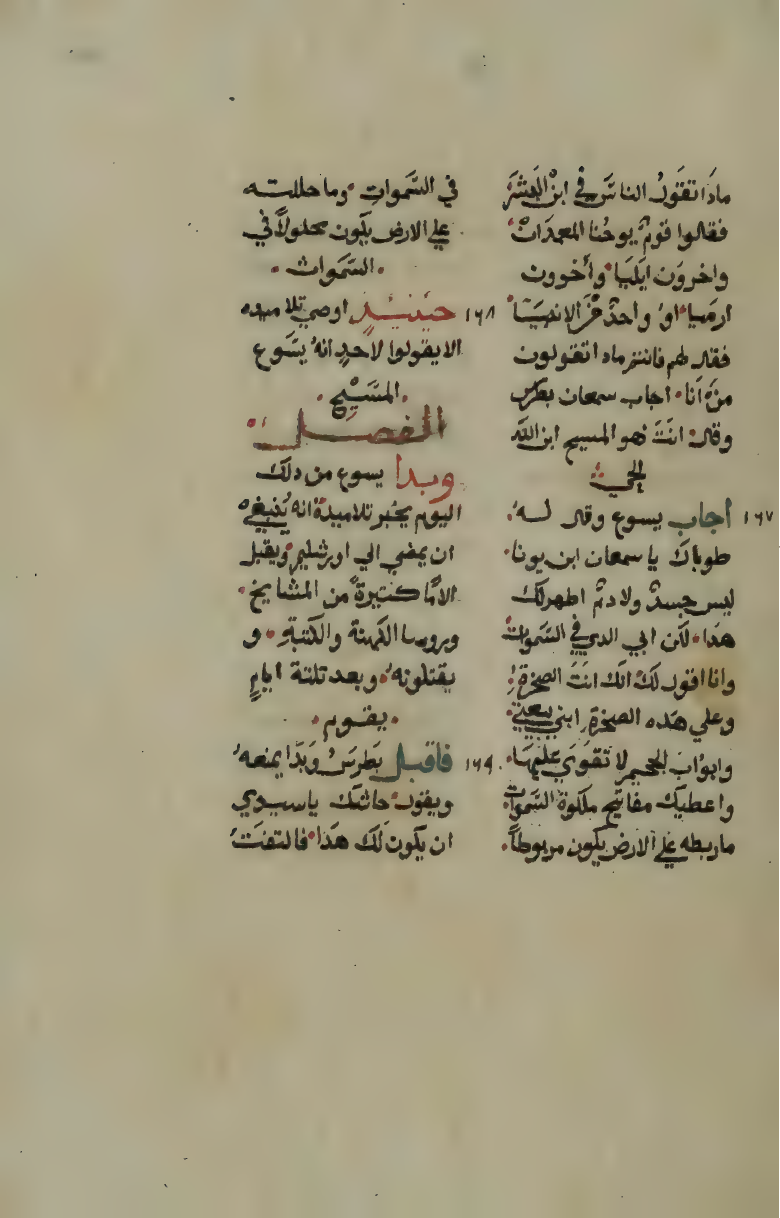 ماذا تقول الناس في ابن البشر
فقالوا قوم يوحنا المعمدان
واخرون ايليا واخرون
ارميا او واحد من الانبيا
فقال لهم فانتم مادا تقولون
من انا اجاب سمعان بطرس
وقال انت هو المسيح ابن الله
الحي
١٦٧ أجاب يسوع وقال له
طوباك يا سمعان ابن يونا
ليس جسد ولا دم اظهر لك
هدا لكن ابي الدي في السموات
وانا اقول لك انك انت الصخرة
وعلي هده الصخرة ابني بيعتي
وابواب الجحيم لا تقوي عليها
واعطيك مفاتيح ملكوة السموات
ما ربطه علي الارض يكون مربوطاً
في السموات وما حللته
علي الارض يكون محلولاً في
السموات
١٦٨ حينيدٍ اوصي تلاميده
الا يقولوا لاحدٍ انه يسوع
المسيح
الفصل
وبدا يسوع من دلك
اليوم يخبر تلاميدة انه ينبغي
ان يمضي الي اورشليم ويقبل
الاما كتيرة من المشايخ
وروسا الكهنة والكتبة و
يقتلونه وبعد تلتة ايام
يقوم
١٦٩ فاقبل بطرس وبدا يمنعه
ويقول حاشك يا سيدي
ان يكون لك هدا فالتفت